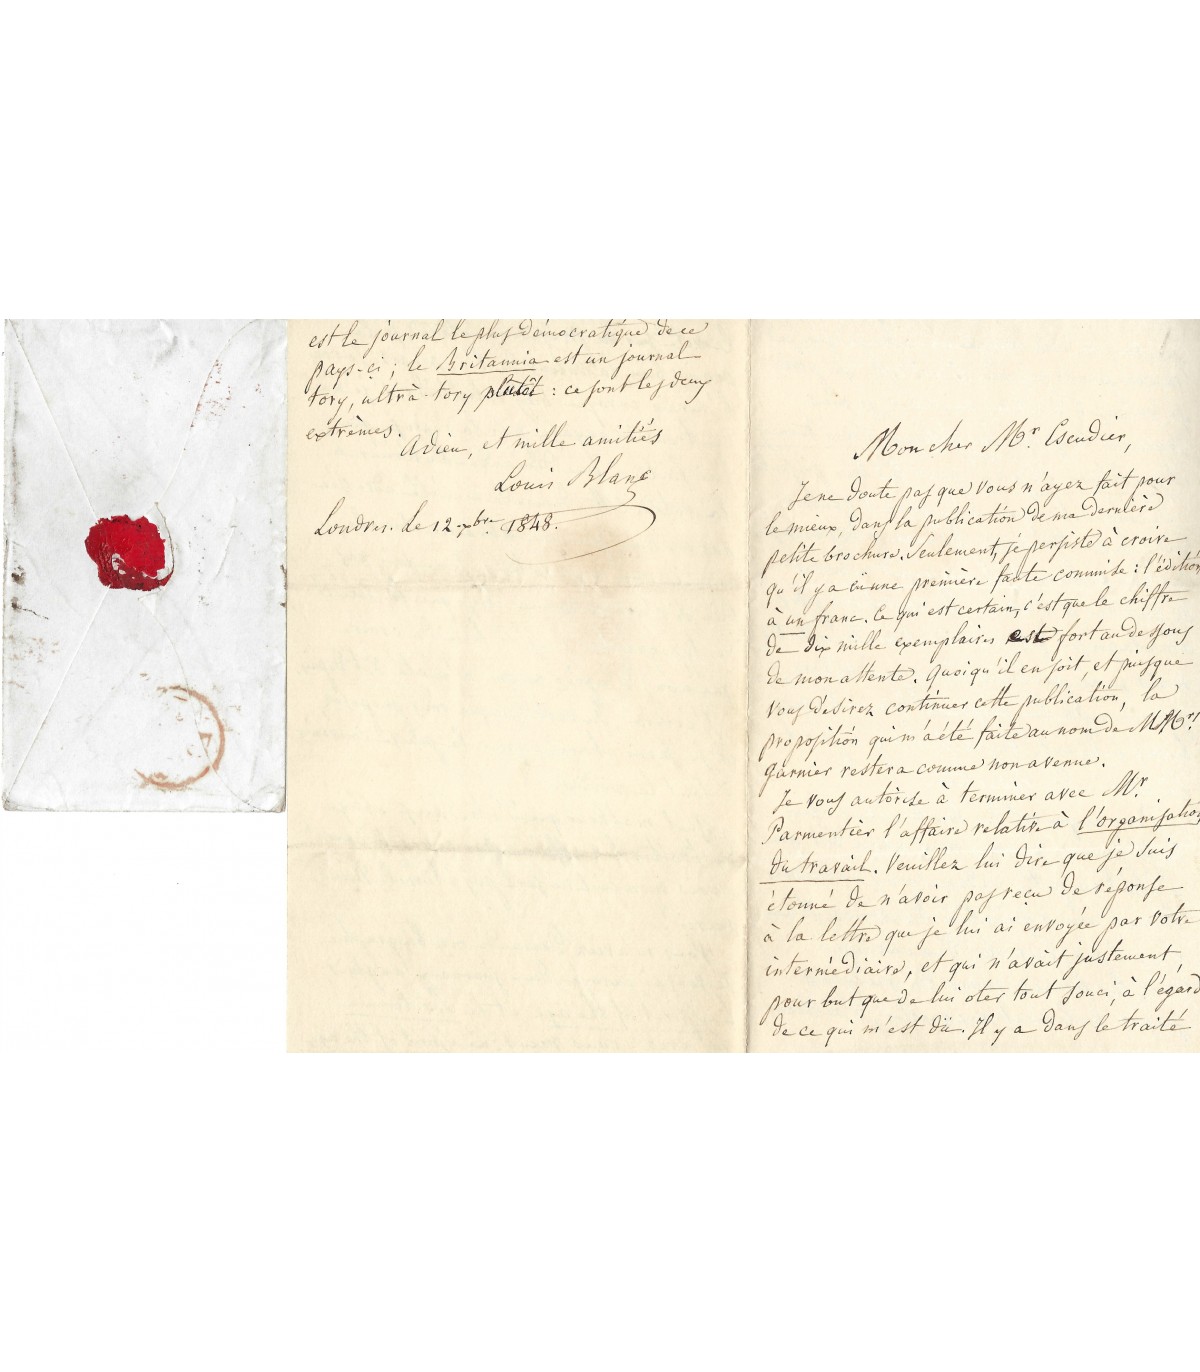 est le journal le plus démocratique de ce
pays-ci ; le Britannia est un journal
tory, ultrà-tory plutôt : ce sont les deux
extrêmes.
Adieu, et mille amitiés
Louis Blanc
Londres. Le 12 xbre 1848.
Mon cher Mr. Escudier,
Je ne doute pas que vous n'ayez fait pour
le mieux, dans la publication de ma dernière
petite brochure. Seulement, je persiste à croire
qu'il y a eu une première faute commise : l'édition
à un franc. Ce qui est certain, c'est que le chiffre
de dix mille exemplaires est fort au dessous
de mon attente. Quoiqu'il en soit, et puisque
vous désirez continuer cette publication, la
proposition qui m'a été faite au nom de MMrs
Garnier restera comme non avenue.
Je vous autorise à terminer avec Mr
Parmentier l'affaire relative à l'organisation
du travail. Veuillez lui dire que je suis
étonné de n'avoir pas reçu de réponse
à la lettre que je lui ai envoyée par votre
intermédiaire, et qui n'avait justement
pour but que de lui oter tout souci, à l'égard
de ce qui m'est dû. Il y a dans le traité